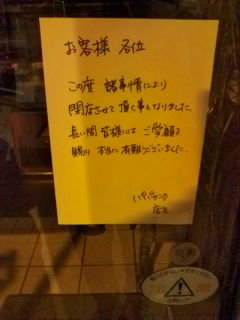 お客様 各位
この度 諸事情により
閉店させて頂く事となりました。
長い間 皆様には ご愛顧を
賜り 本当に有難うございました。
店主
自動